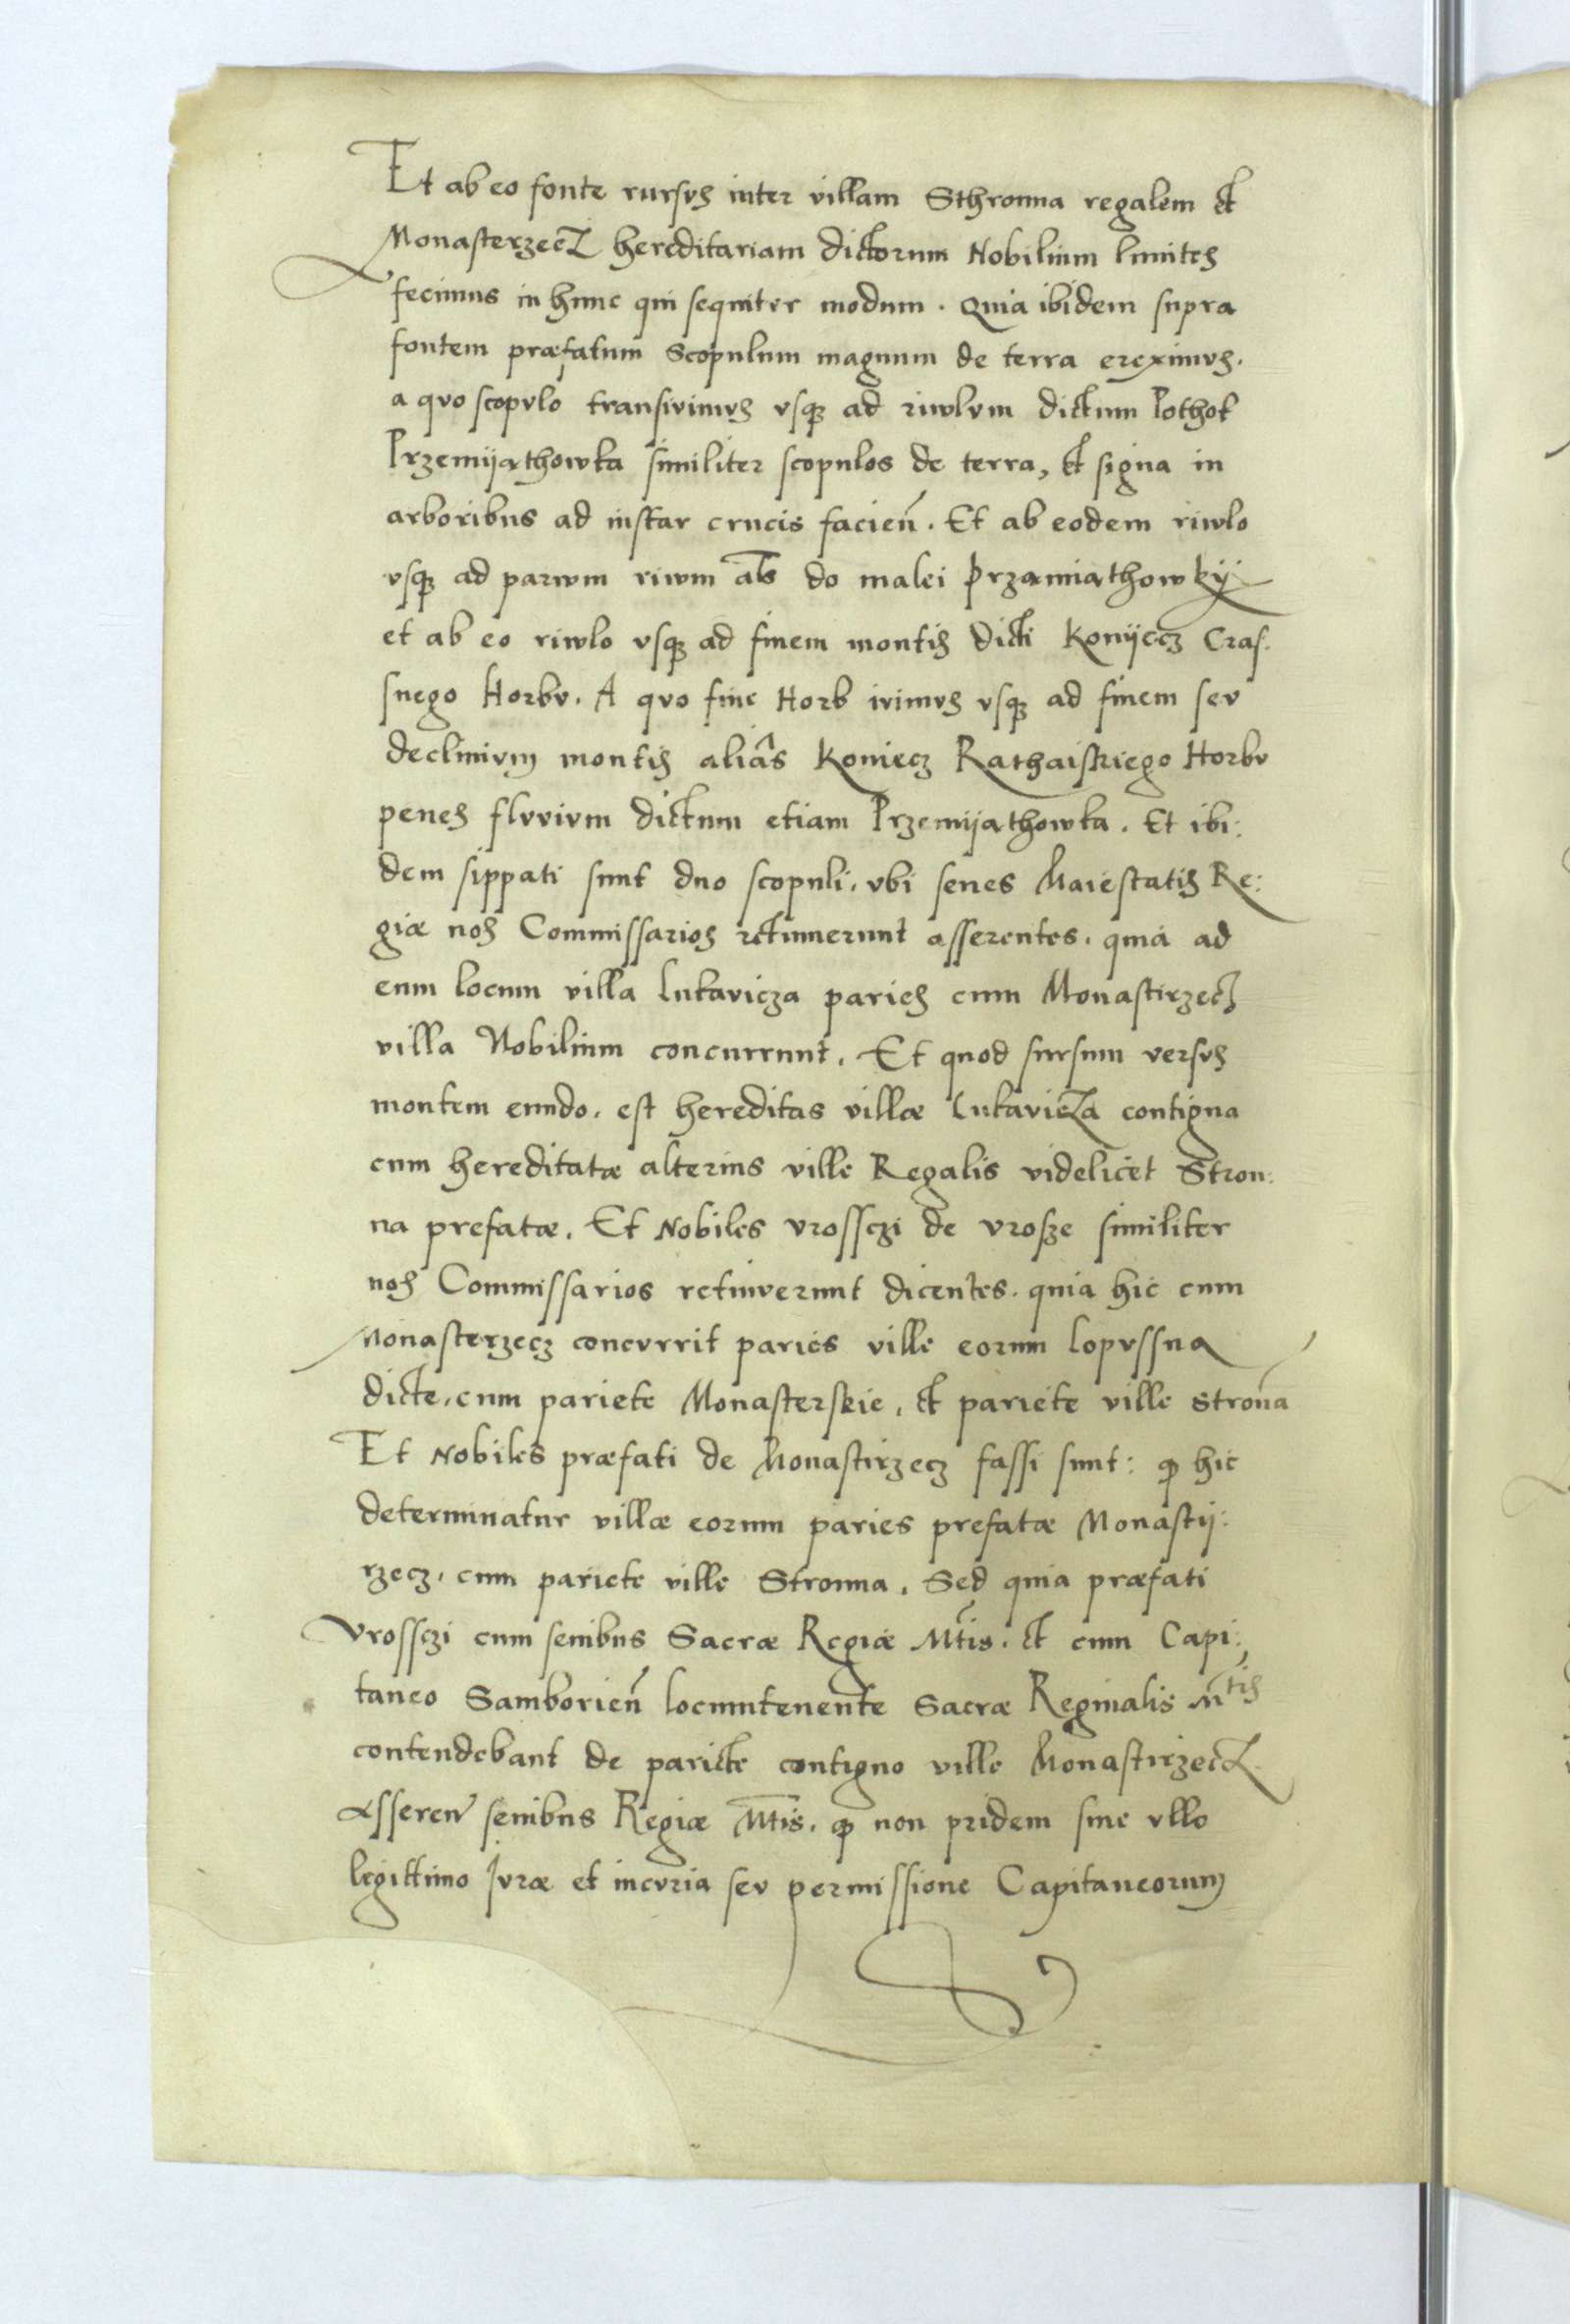 Et ab eo fonte rursus inter villam Sthronna regalem et
Monasterzecz hereditariam dictorum Nobilium limites
fecimus in hunc qui sequiter modum. Quia ibidem supra
fontem præfatum scopulum magnum de terra ereximus.
a quo scopulo transivimus usq; ad riwlum dictum Pothok
Przemyathowka similiter scopulos de terra, et signa in
arboribus ad instar crucis facieñ. Et ab eodem riwlo
usq; ad parwm riwm al̄s do malei przamiathowky
et ab eo riwlo usq; ad finem montis dicti Konyecz Cras:
snego Horbu. A quo fine Horb ivimus usq; ad finem seu
declinium montis aliâs Koniecz Rathaiskiego Horbu
penes fluvium dictum etiam Przemyathowka. Et ibi:
dem sippati sunt duo scopuli, ubi senes Maiestatis Re:
giæ nos Commissarios retinuerunt asserentes, quia ad
eum locum villa Lukavicza paries cum Monastirzecz
villa Nobilium concurrunt. Et quod sursum versus
montem eundo, est hereditas villæ Lukavicza contigua
cum hereditatæ alterius ville Regalis videlicet Stron:
na prefatæ. Et Nobiles Urossczi de Urosze similiter
nos Commissarios retinuerunt dicentes, quia hic cum
Monasterzecz concurrit paries ville eorum Lopussna
dicte, cum pariete Monasterskie, et pariete ville Stroña
Et Nobiles præfati de Monastirzecz fassi sunt: ꝙ hic
determinatur villæ eorum paries prefatæ Monasty:
rzecz, cum pariete ville Stronna. Sed quia præfati
Urossczi cum senibus Sacræ Regiæ Mtis. et cum Capi:
taneo Samborieñ locumtenente Sacræ Reginalis Mtis
contendebant de pariete contiguo ville Monastirzecz
Asserent̃ senibus Regiæ Mtis. ꝙ non pridem sine ullo
legittimo Juræ et incuria seu permissione Capitaneorum